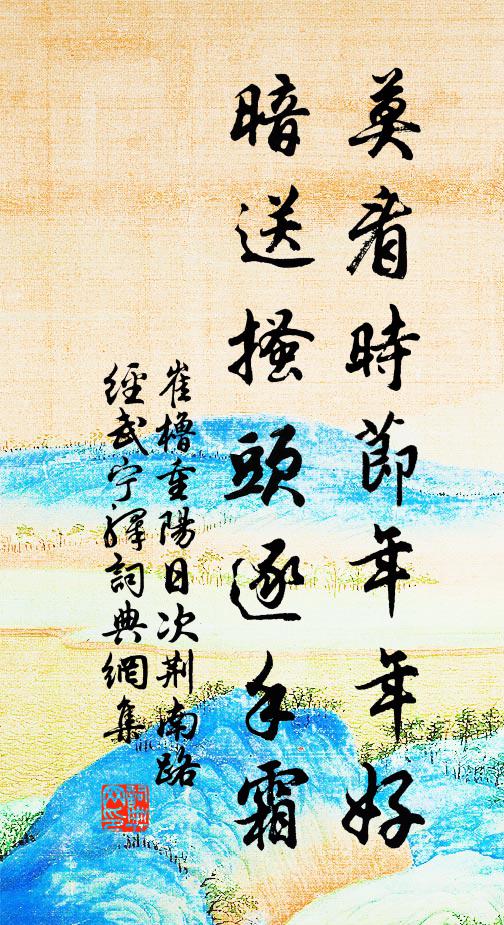 莫看時節年年好
暗送搔頭逐手霜
崔櫓重陽日次荆南路
經武宁驛詞典網集